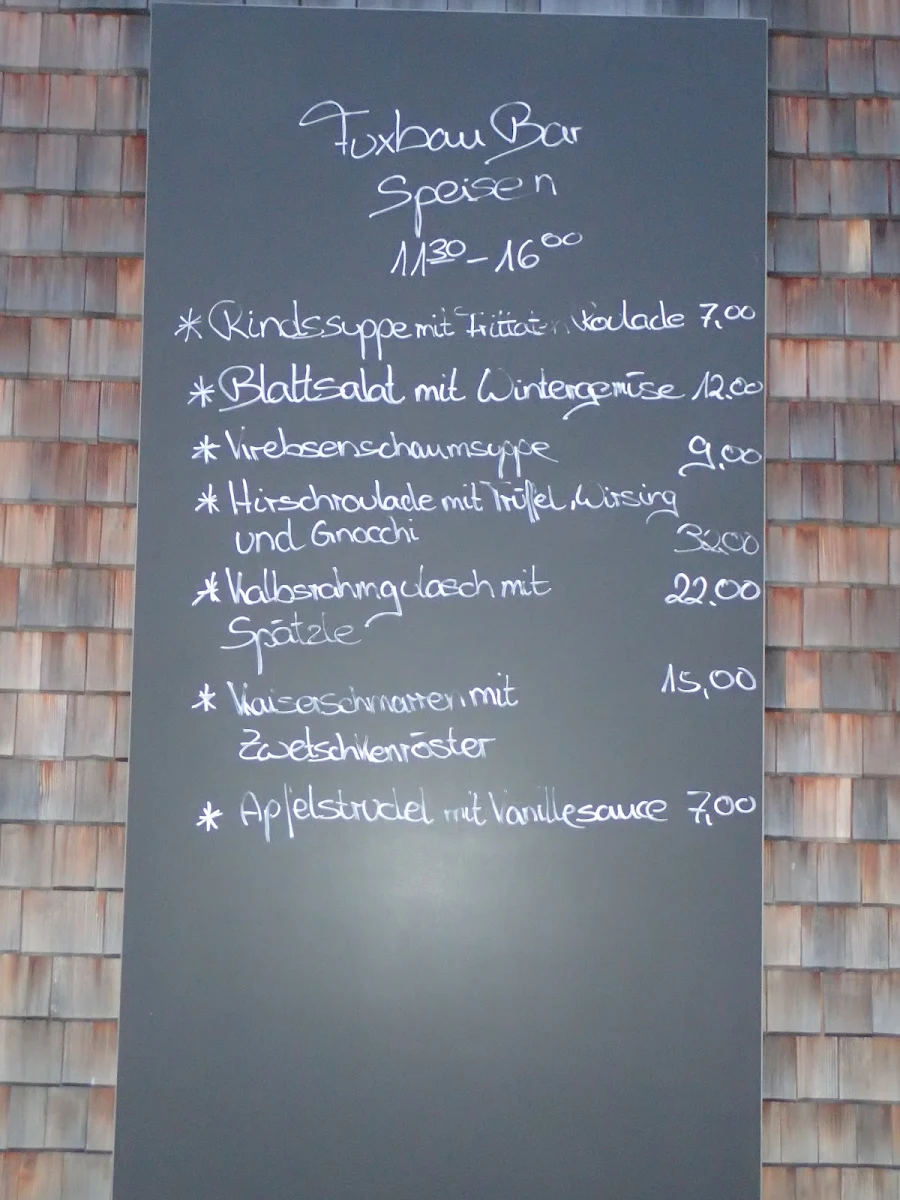 Fuxbau Bar
Speisen
11³⁰ - 16⁰⁰
* Rindssuppe mit Frittaten Roulade 7,00
* Blattsalat mit Wintergemüse 12.00
* Krebsenschaumsuppe 9,00
* Hirschroulade mit Trüffel, Wirsing
und Gnocchi
* Kalbsrahmgulasch mit 22.00
Spätzle
* Kaiserschmarren mit 15,00
Zwetschkenröster
* Apfelstrudel mit Vanillesauce 7,00